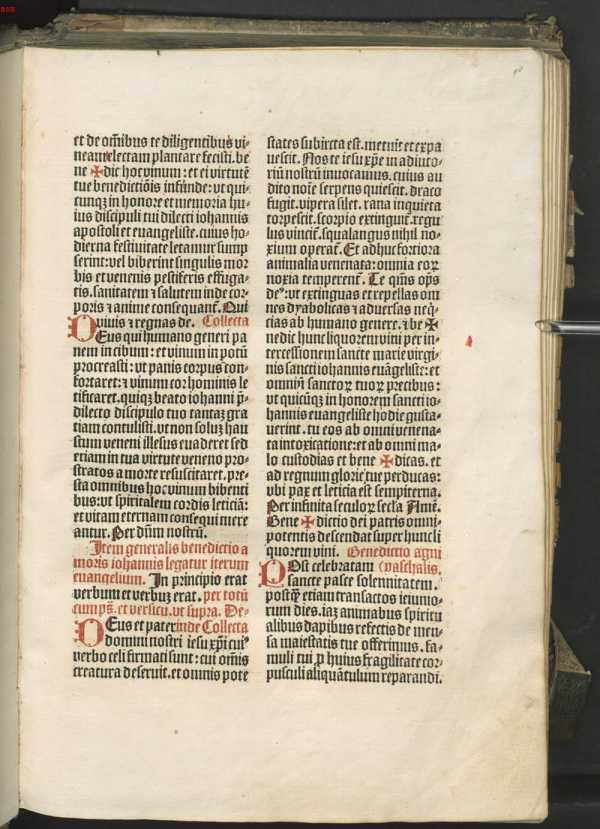 et de om̄ibus te diligentibus vi-
neam electam plantare fecisti. be
ne ✠ dic hoc vinum: et ei virtutē
tue benedictiōis infunde: vt qui-
cunqʒ in honore et memoria hu-
ius discipuli tui dilecti iohannis
apostoli et euangeliste. cuius ho-
dierna festiuitate letamur sump
serint: vel biberint singulis mor
bis et venenis pestiferis effuga-
tis. sanitatem ⁊ salutem inde cor-
poris ⁊ anime consequant᷑. Qui
viuis ⁊ regnas de. Collecta
DEus qui humano generi pa
nem in cibum: et vinum in potū
procreasti: vt panis corpus con-
fortaret: ⁊ vinum cor hominis le
tificaret. quiqʒ beato iohanni p̄-
dilecto discipulo tuo tantaʒ gra
tiam contulisti. vt non soluʒ hau
stum veneni illesus euaderet sed
etiam in tua virtute veneno pro-
stratos a morte resuscitaret. pre-
sta omnibus hoc vinum bibenti
bus: vt spiritalem cordis leticiā:
et vitam eternam consequi mere
antur. Per dūm nostrū.
Item generalis benedictio a
moris iohannis legatur iterum
euangelium. In principio erat
verbum et verbuʒ erat. per totū
cum ps̄. et versicu. vt supra. De-
DEus et pater inde Collecta
domini nostri iesu xp̄i cui⁹
verbo celi firmati sunt: cui om̄is
creatura deseruit. et omnis pote
states subiecta est. metuit et expa
uescit. Nos te iesu xp̄e in adiuto-
riū nostrū inuocamus. cuius au
dito noīe serpens quiescit. draco
fugit. vipera silet. rana inquieta
torpescit. scorpio extinguit᷑. regu
lus vincit᷑. sqalangus nihil no-
xium operat᷑. Et adhuc fortiora
animalia venenata: omnia eoꝝ
noxia temperent᷑. Te q̄ms op̄s
de⁹: vt extinguas et repellas om
nes dyabolicas ⁊ aduersas neq̄-
cias ab humano genere. ⁊ be ✠
nedic hunc liquorem vini per in-
tercessionem sancte marie virgi-
nis sancti iohannis euāgeliste: et
omniū sanctoꝝ tuoꝝ precibus:
vt quicūqʒ in honorem sancti io-
hannis euangeliste hodie gusta-
uerint. tu eos ab omni venena-
ta intoxicatione: et ab omni ma-
lo custodias et bene ✠ dicas. et
ad regnum glorie tue perducas:
vbi pax et leticia est sempiterna.
Per infinita seculoꝝ secla Amē.
Bene ✠ dictio dei patris omni-
potentis descendat super hunc li
quorem vini. Benedictio agni
POst celebratam (paschalis.
sancte pasce solennitatem.
postq̄ etiam transactos ieiunio-
rum dies. iaʒ animabus spiritu
alibus dapibus refectis de men-
sa maiestatis tue offerimus. fa-
muli tui ꝓ huius fragilitate cor-
pusculi aliquātulum reparandi.